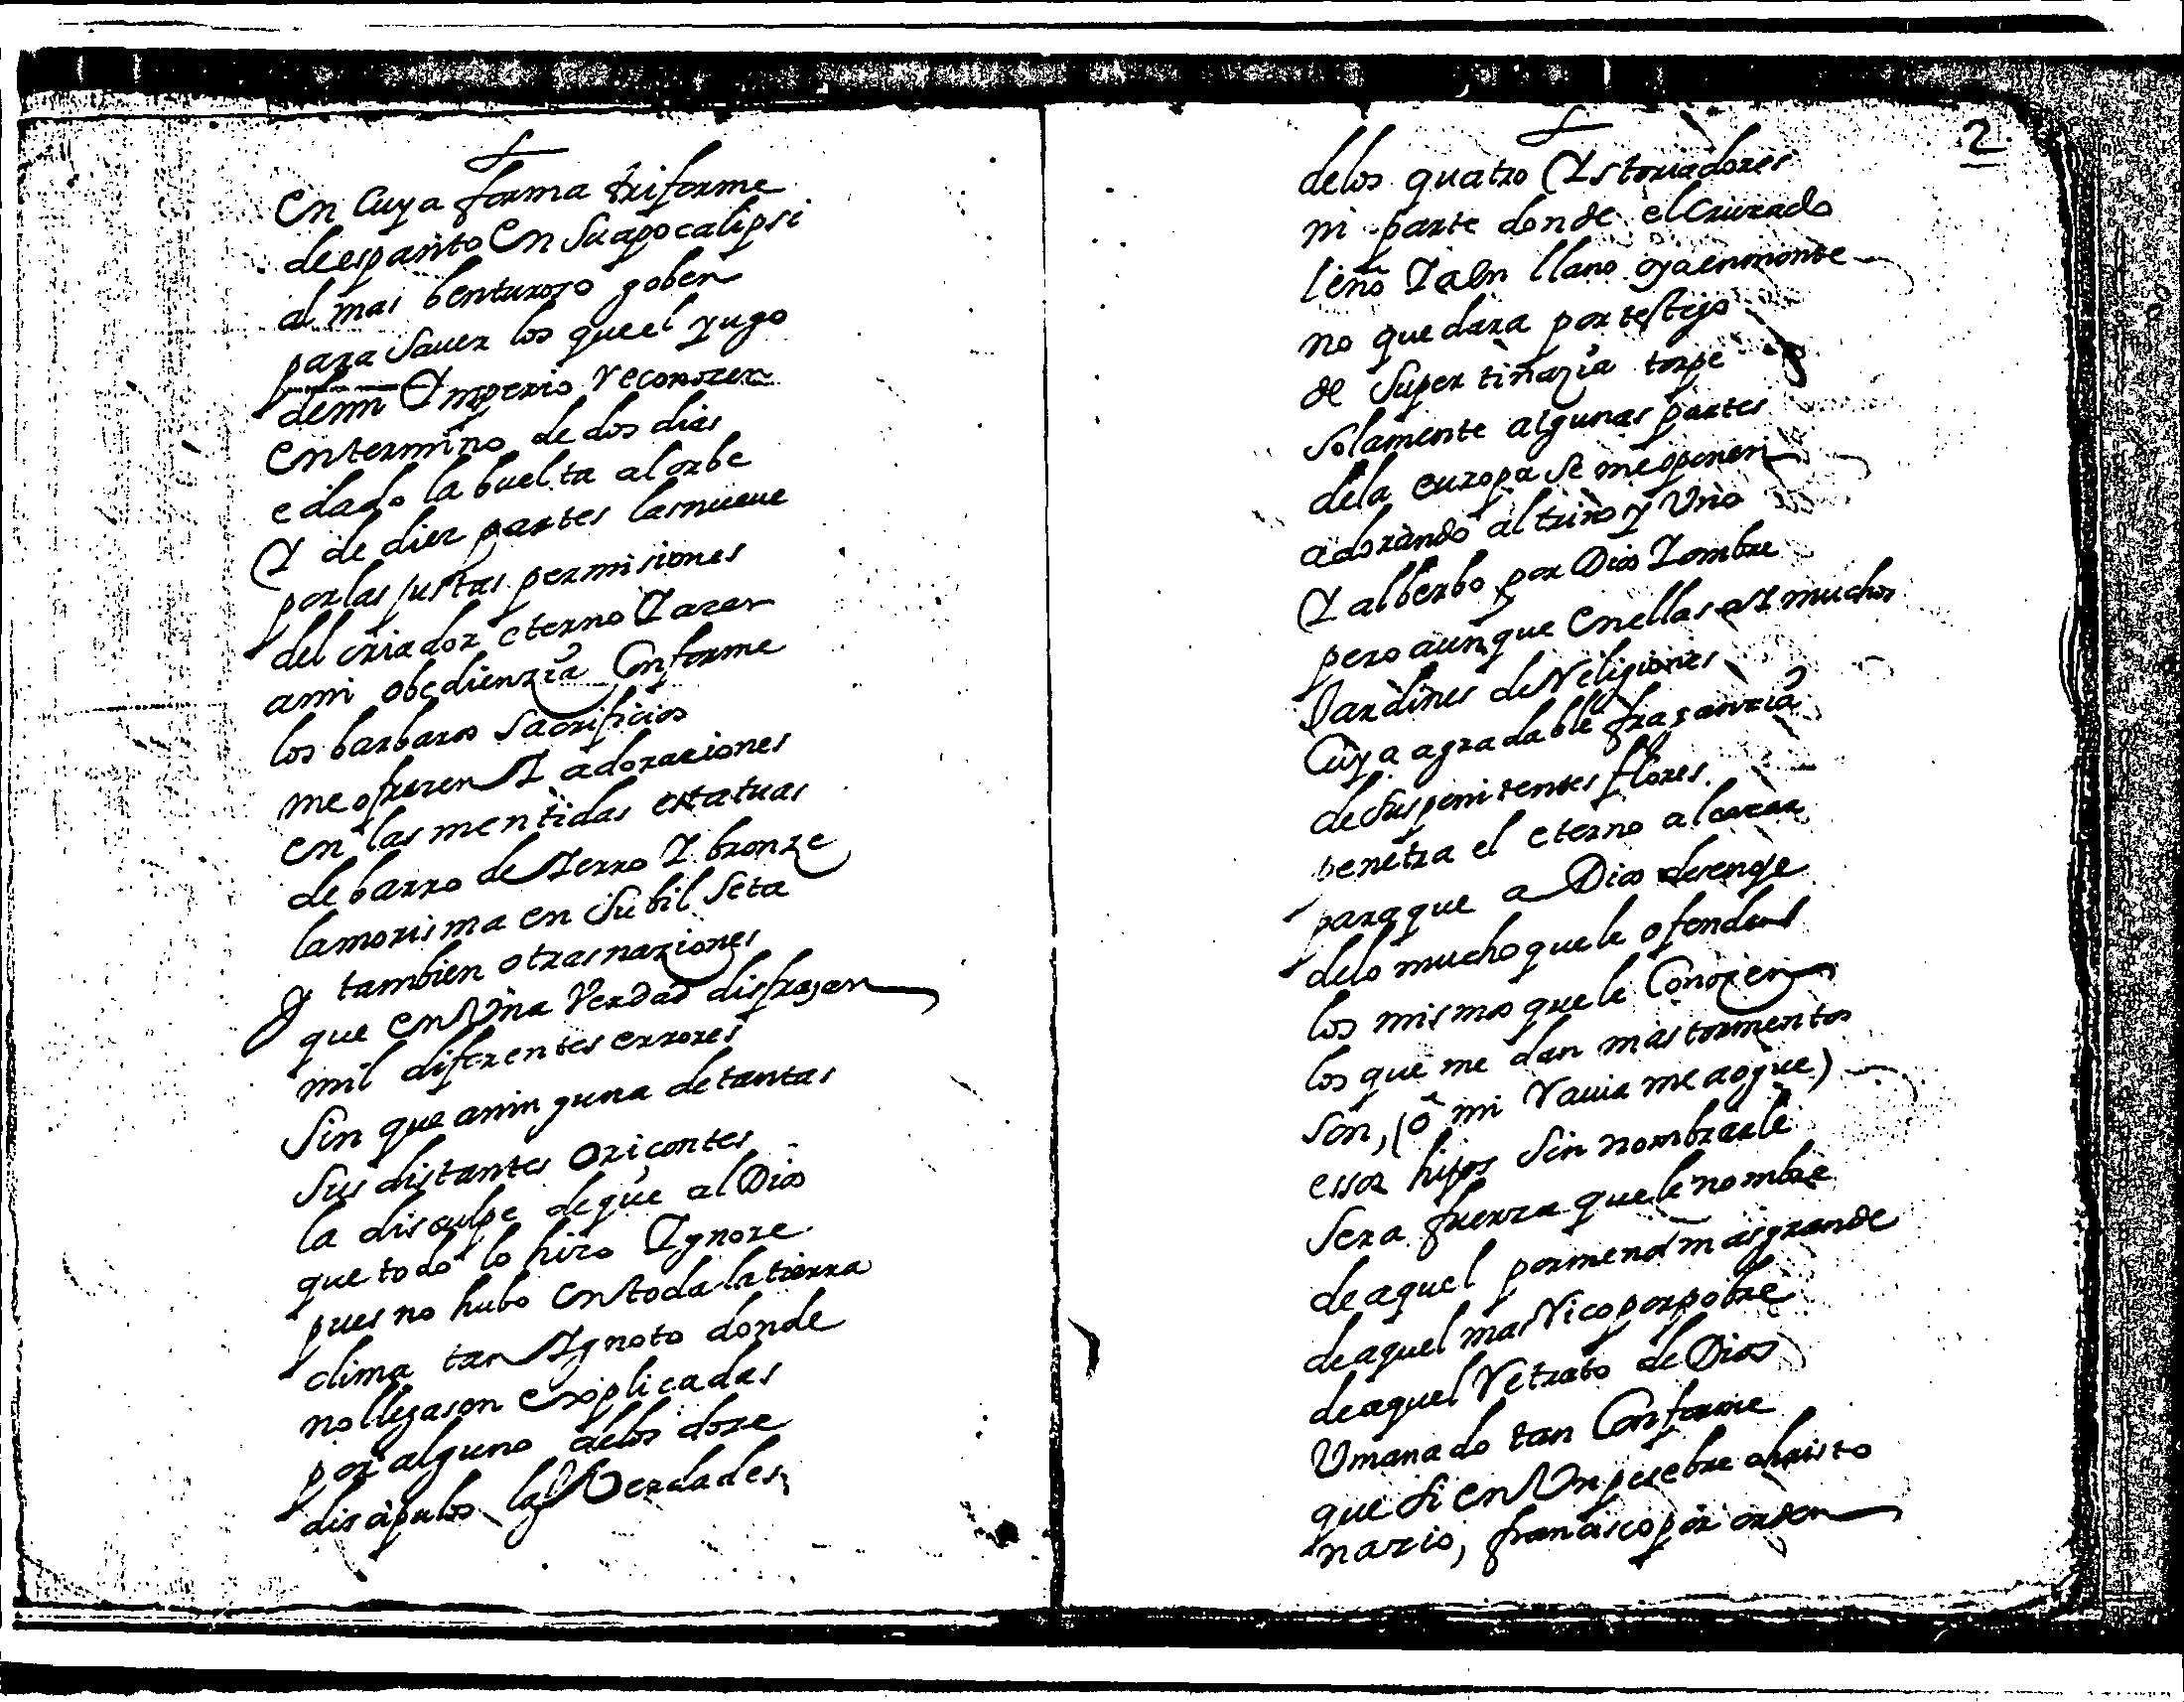 en cuya forma triforme
deespanto en su apocalipsi
al mas benturoso goben
para saver los queel yugo
demi Imperio reconozen
entermino de dos dias
e dado la buelta al orbe
I de diez partes lasnueue
porlas justas permisiones
del criador eterno I azen
ami obedienzia Conforme
los barbaros sacrificios
me ofrezen I adoraziones
en las mentidas estatuas
de barro de Ierro I bronze
lamorisma en su bil seta
y tambien otras naziones
que en Una Verdad disfrazan
mil diferentes errores
sin que aninguna detantas
sus distantes oricontes
la disculpe deque al Dios
que todo lo hizo Ignore
pues no hubo en toda la tierra
clima tan Ignoto donde
nollegasen explicadas
por alguno delos doze
discipulos las Verdades
2
delos quatro Istoriadores
ni parte donde el cruzado
leño Iaen llano oyaenmonte
no quedara portestigo
de su pertinazia torpe
solamente algunas partes
dela europa se meoponen
adorando al trino y Uno
I alberbo por Dios Iombre
pero aunque en ellas aI muchos
Jardines de Religiones
Cuya agradable fraganzia
desus penitentes flores
penetra el eterno alcazar
paraque a Dios desenoje
delo mucho quele ofenden
los mismos quele Conozen
los que me dan mas tormentos
son, (o mi Ravia me aogue)
essos hijos sin nombrarle
sera fuerza quele nombre
deaquel pormenor masgrande
deaquel mas Rico porpobre
deaquel Retrato de Dios
Umanado tan Conforme
que si en Un pesebre christo
nazio, francisco por orden